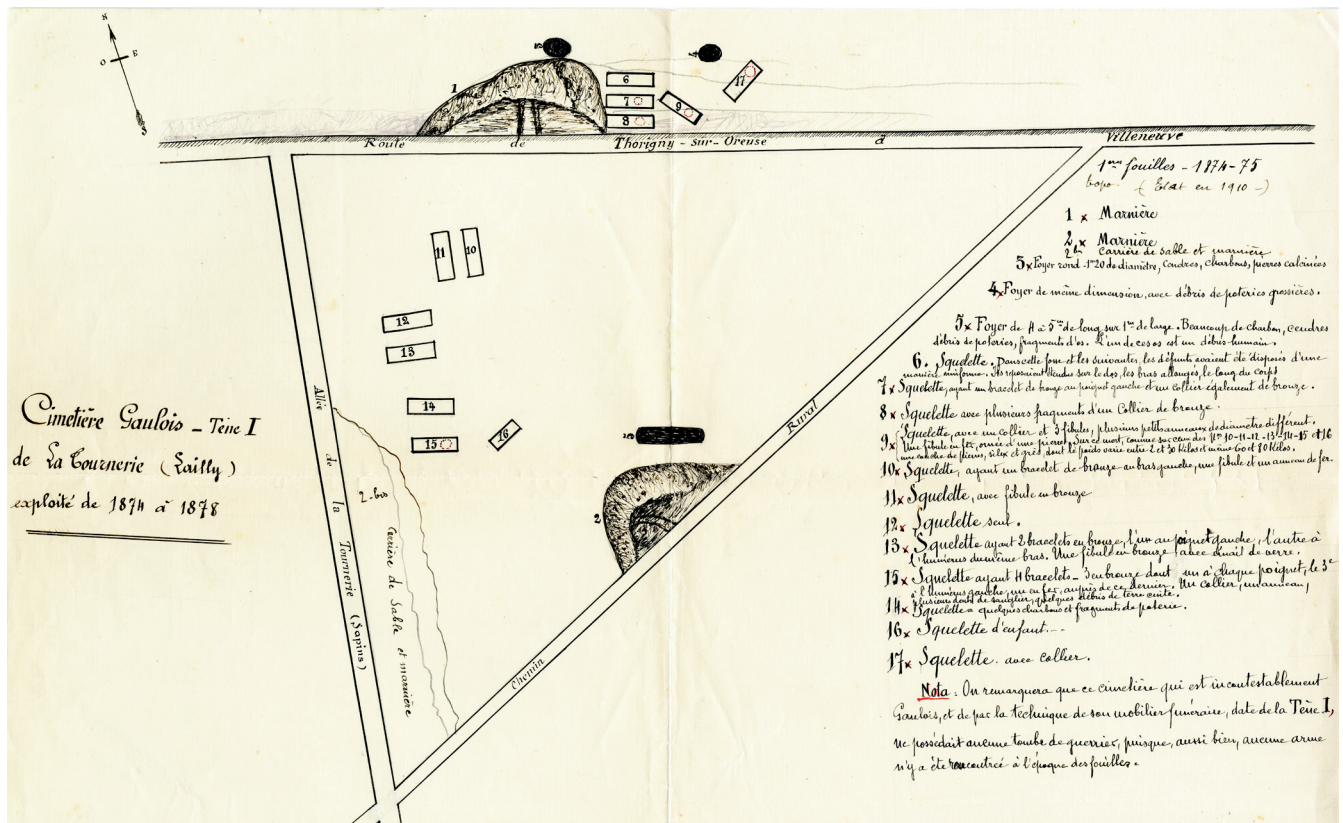 N
O
E
S
3
4
1
6
7
8
9
17
Route de Thorigny-sur-Oreuse à Villeneuve
1ères fouilles - 1874-75
topo. (Etat en 1910 -)
1 x Marnière
2 x Marnière
2 bis carrière de sable et marnière
3 x Foyer rond - 1m20 de diamètre, cendres, charbons, pierres calcinées
4 x Foyer de même dimension, avec débris de poteries grossières.
5 x Foyer de 4 à 5m de long sur 1m de large. Beaucoup de charbon, cendres
débris de poteries, fragments d'os. L'un de ces os est un débris humain.
6. Squelette. Dans cette fosse et les suivantes, les défunts avaient été disposés d'une
manière uniforme. Ils reposaient étendus sur le dos, les bras allongés, le long du corps
7 x Squelette, ayant un bracelet de bronze au poignet gauche et un collier également de bronze.
8 x Squelette avec plusieurs fragments d'un Collier de bronze.
9 x Squelette, avec un collier et 3 fibules, plusieurs petits anneaux de diamètre différent.
Une fibule en fer, ornée d'une pierre. Sur ce mort, comme sur ceux des Nos 10-11-12-13-14-15 et 16
une couche de pierres, silex et grès, dont le poids varie entre 2 et 30 Kilos et même 60 et 80 Kilos.
10 x Squelette, ayant un bracelet de bronze au bras gauche, une fibule et un anneau de fer.
11 x Squelette, avec fibule en bronze
12 x Squelette seul.
13 x Squelette ayant 2 bracelets en bronze, l'un au poignet gauche, l'autre à
l'humérus du même bras. Une fibule en bronze avec émail de verre.
15 x Squelette ayant 4 bracelets - 3 en bronze dont un à chaque poignet, le 3e
à l'humérus gauche, un en fer, auprès de ce dernier. Un collier, un anneau,
plusieurs dents de sanglier, quelques débris de terre cuite.
14 x Squelette quelques charbons et fragments de poterie.
16 x Squelette d'enfant.--
17 x Squelette avec collier.
Nota : On remarquera que ce cimetière qui est incontestablement
Gaulois, et de par la technique de son mobilier funéraire, date de la Tène I,
ne possédait aucune tombe de guerrier, puisque, aussi bien, aucune arme
n'y a été rencontrée à l'époque des fouilles.
11
10
12
13
14
15
16
5
2
2-bis
Carrière de Sable et marnière
Allée de la Tournerie (Sapins)
Chemin Rural
Cimetière Gaulois - Tène I
de La Tournerie (Lailly)
exploité de 1874 à 1878